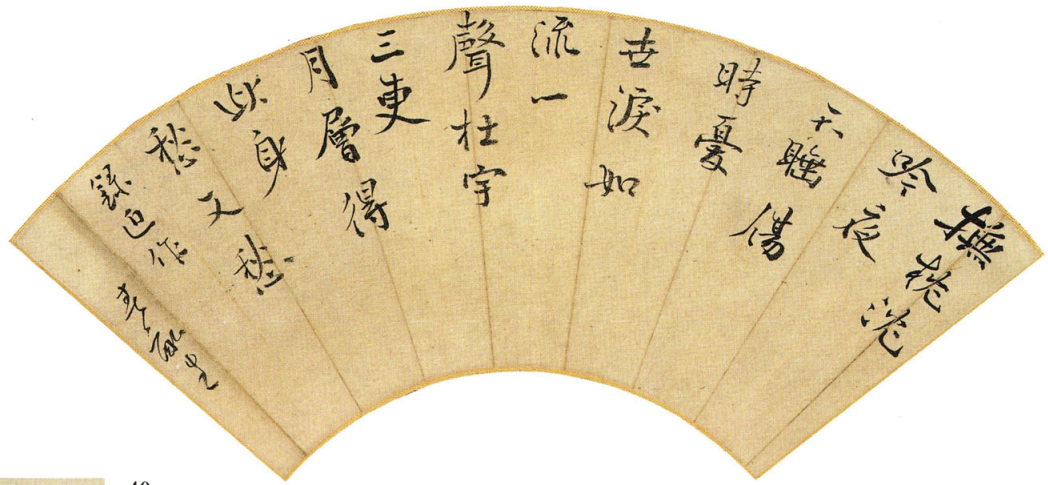 撫枕沈
吟夜
不睡傷
時憂
世淚如
流一
聲杜宇
三更
月層得
此身
愁又愁
錄近作